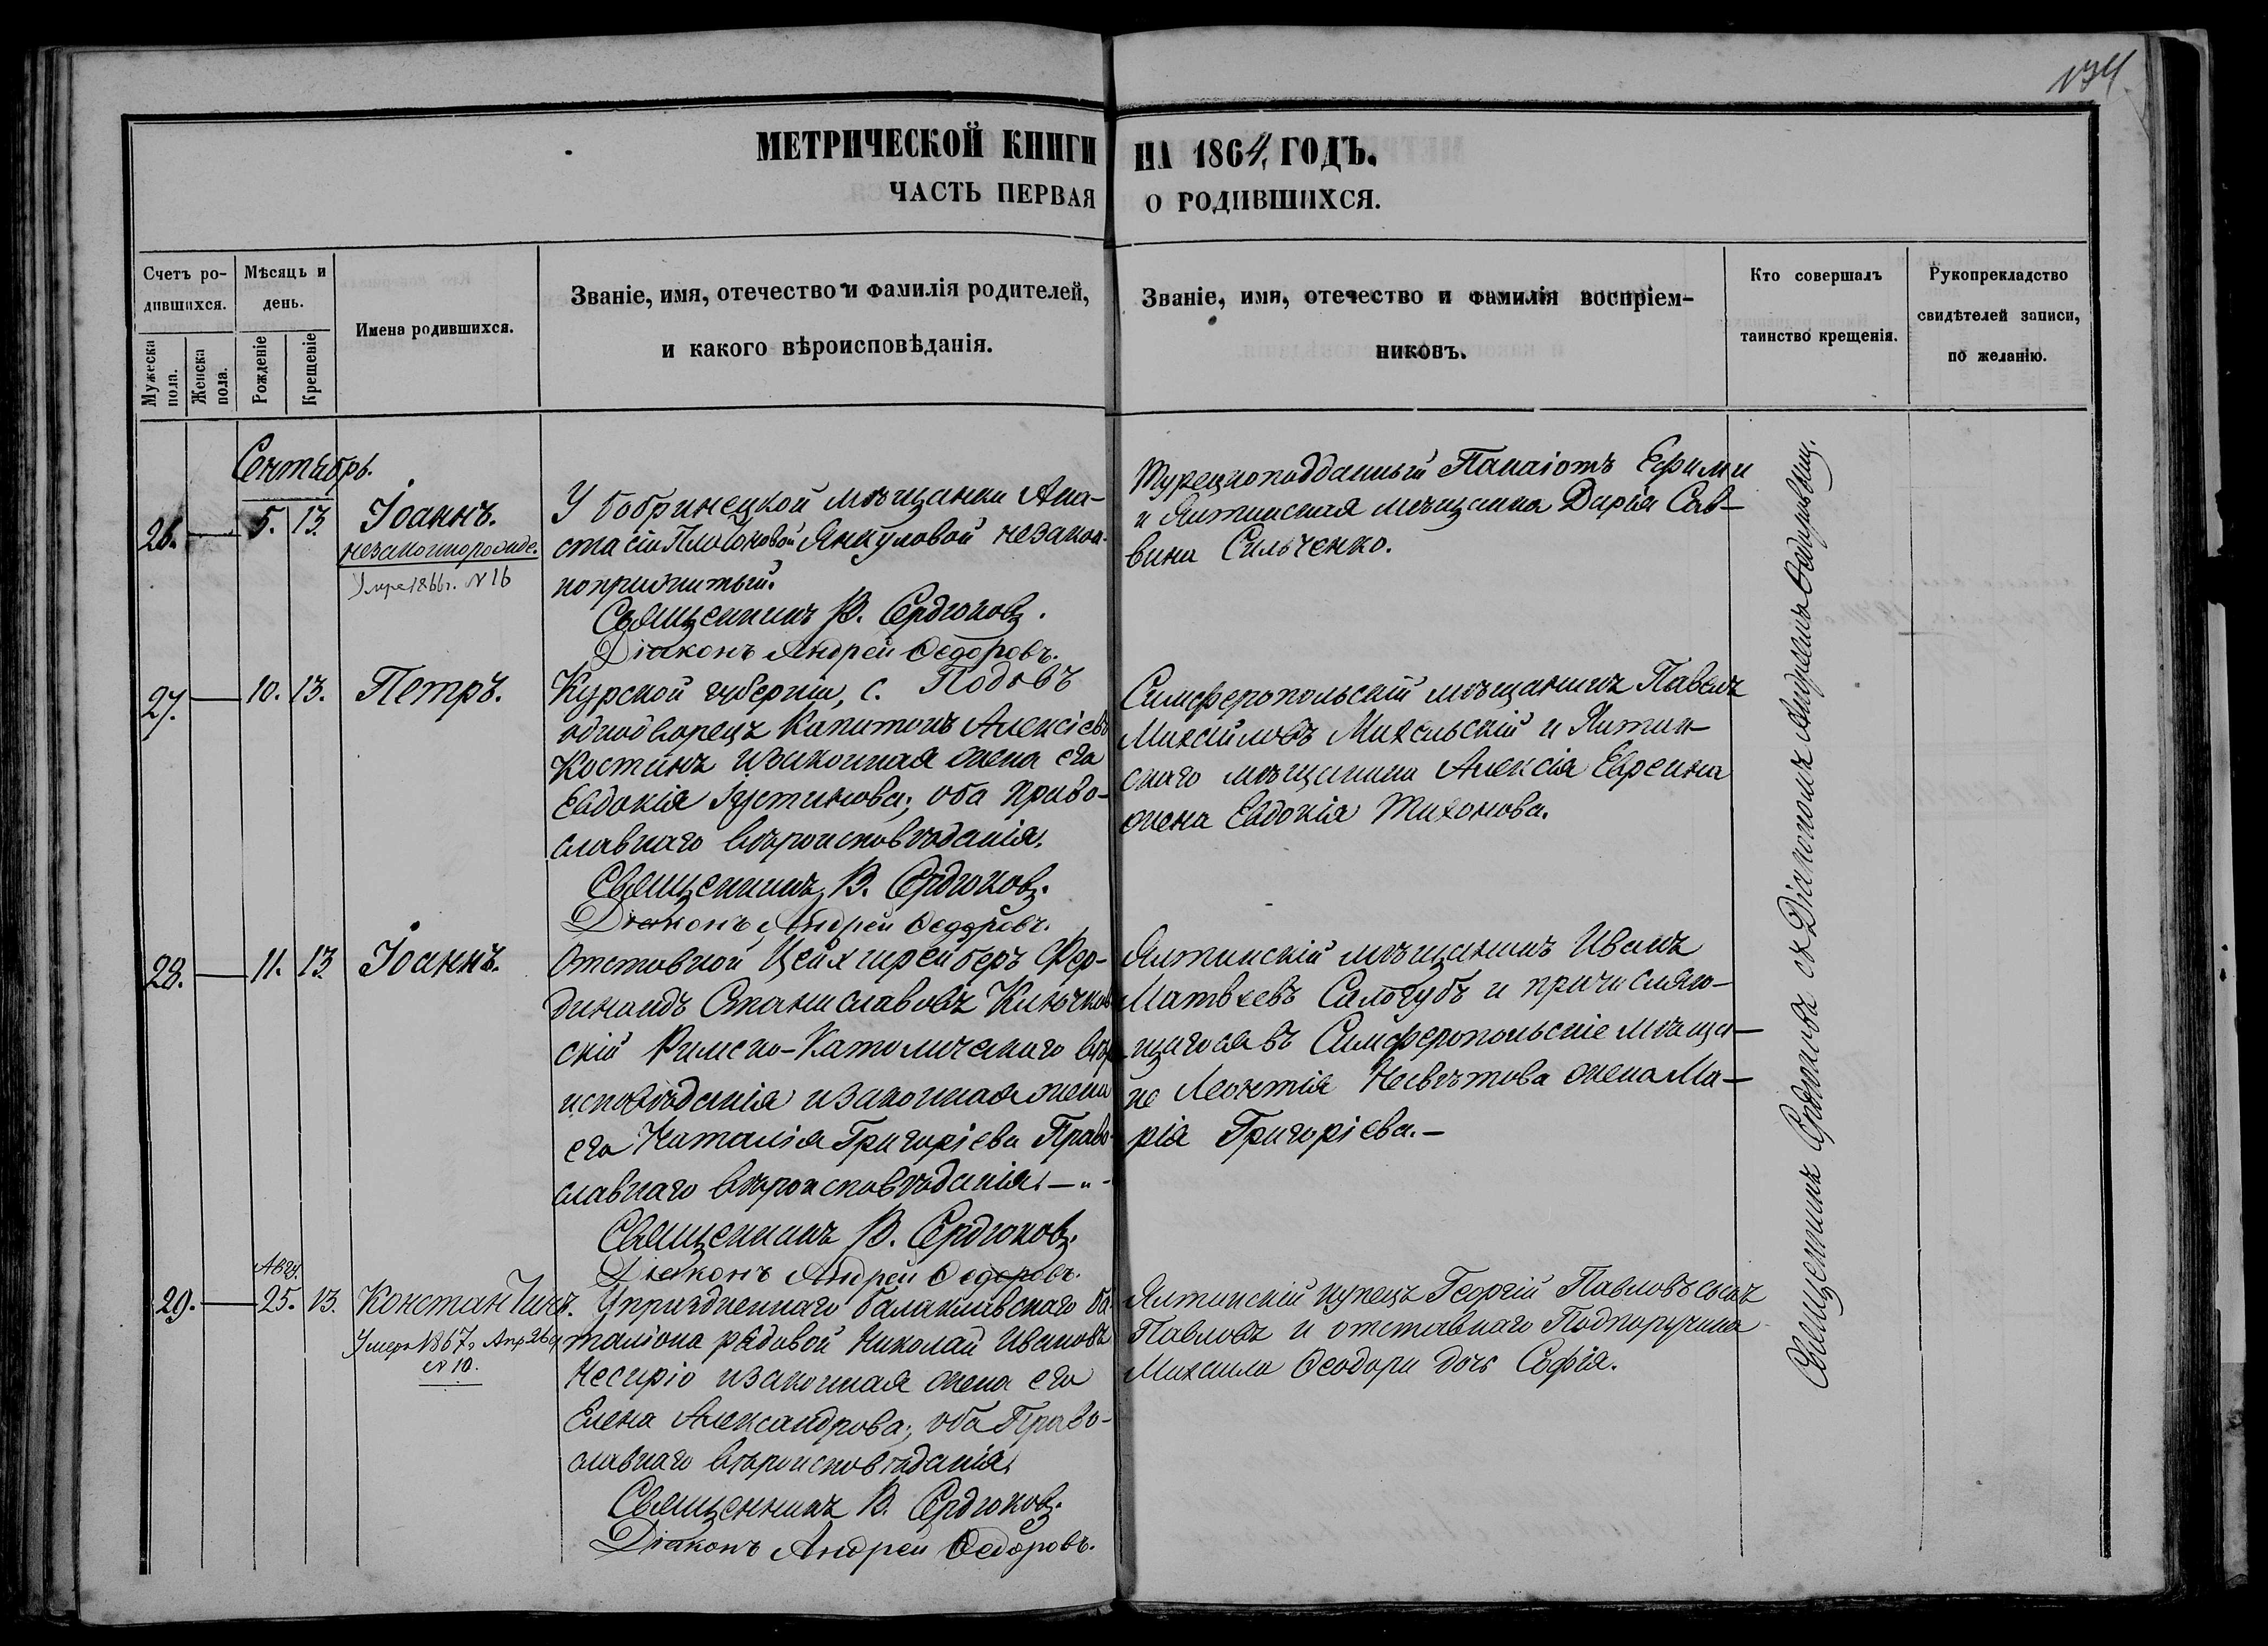 134
МЕТРИЧЕСКОЙ КНИГИ НА 1864, ГОДЪ.
ЧАСТЬ ПЕРВАЯ О РОДИВШИХСЯ.
Счетъ ро-
дившихся.
Мужеска
пола.
Женска
пола.
Мѣсяцъ и
день.
Рожденіе
Крещеніе
Имена родившихся.
Званіе, имя, отечество и фамилія родителей,
и какого вѣроисповѣданія.
Званіе, имя, отечество и фамилія воспріем-
никовъ.
Кто совершалъ
таинство крещенія.
Рукоприкладство
свидѣтелей записи,
по желанію.
Сентябрь.
26. 5. 13. Іоаннъ.
незаконнорожде.
Умре 1866г. №16
У бобринецкой мѣщанки Ана-
стасіи Платоновой Янкуловой незакон-
ноприжитый.
Священникъ В. Сердюковъ.
Діаконъ Андрей Ѳедоровъ.
Турецкоподданный Панаіотъ Ефими
и Ялтинская мѣщанка Дарія Сав-
вина Сильченко.
27. 10. 13. Петръ.
Курской губерніи, с. Подовъ
однодворецъ Капитонъ Алексіевъ
Костинъ и законная жена его
Евдокія Іустинова; оба право-
славнаго вѣроисповѣданія.
Священникъ В. Сердюковъ.
Діаконъ Андрей Ѳедоровъ.
Симферопольскій мѣщанинъ Павелъ
Михайловъ Михельскій и Ялтин-
скаго мѣщанина Алексія Евреина
жена Евдокія Тихонова.
28. 11. 13. Іоаннъ.
Отставной Цейхшрейберъ Фер-
динандъ Станиславовъ Ключков
скій Римско-Католическаго вѣро
исповѣданія и законная жена
его Наталія Григоріева Право-
славнаго вѣроисповѣданія.—„-
Священникъ В. Сердюковъ.
Діаконъ Андрей Ѳедоровъ.
Ялтинскій мѣщанинъ Иванъ
Матвѣевъ Сологубъ и причисляю-
щагося въ Симферопольскіе мѣща-
не Леонтія Несвѣтова жена Ма-
рія Григоріева.—
Авгу.
29. 25. 13. Константинъ.
Умеръ 1867г. Апр 26д
№ 10.
Упраздненнаго балаклавскаго ба-
таліона рядовой Николай Ивановъ
Несиріо и законная жена его
Елена Александрова; оба Право-
славнаго вѣроисповѣданія.
Священникъ В. Сердюковъ.
Діаконъ Андрей Ѳедоровъ.
Ялтинскій купецъ Георгій Павловъ сынъ
Павловъ и отставнаго Подпоручика
Михаила Ѳеодори дочь Софія.
Священникъ Сердюковъ съ Діакономъ Андреемъ Ѳедоровымъ.